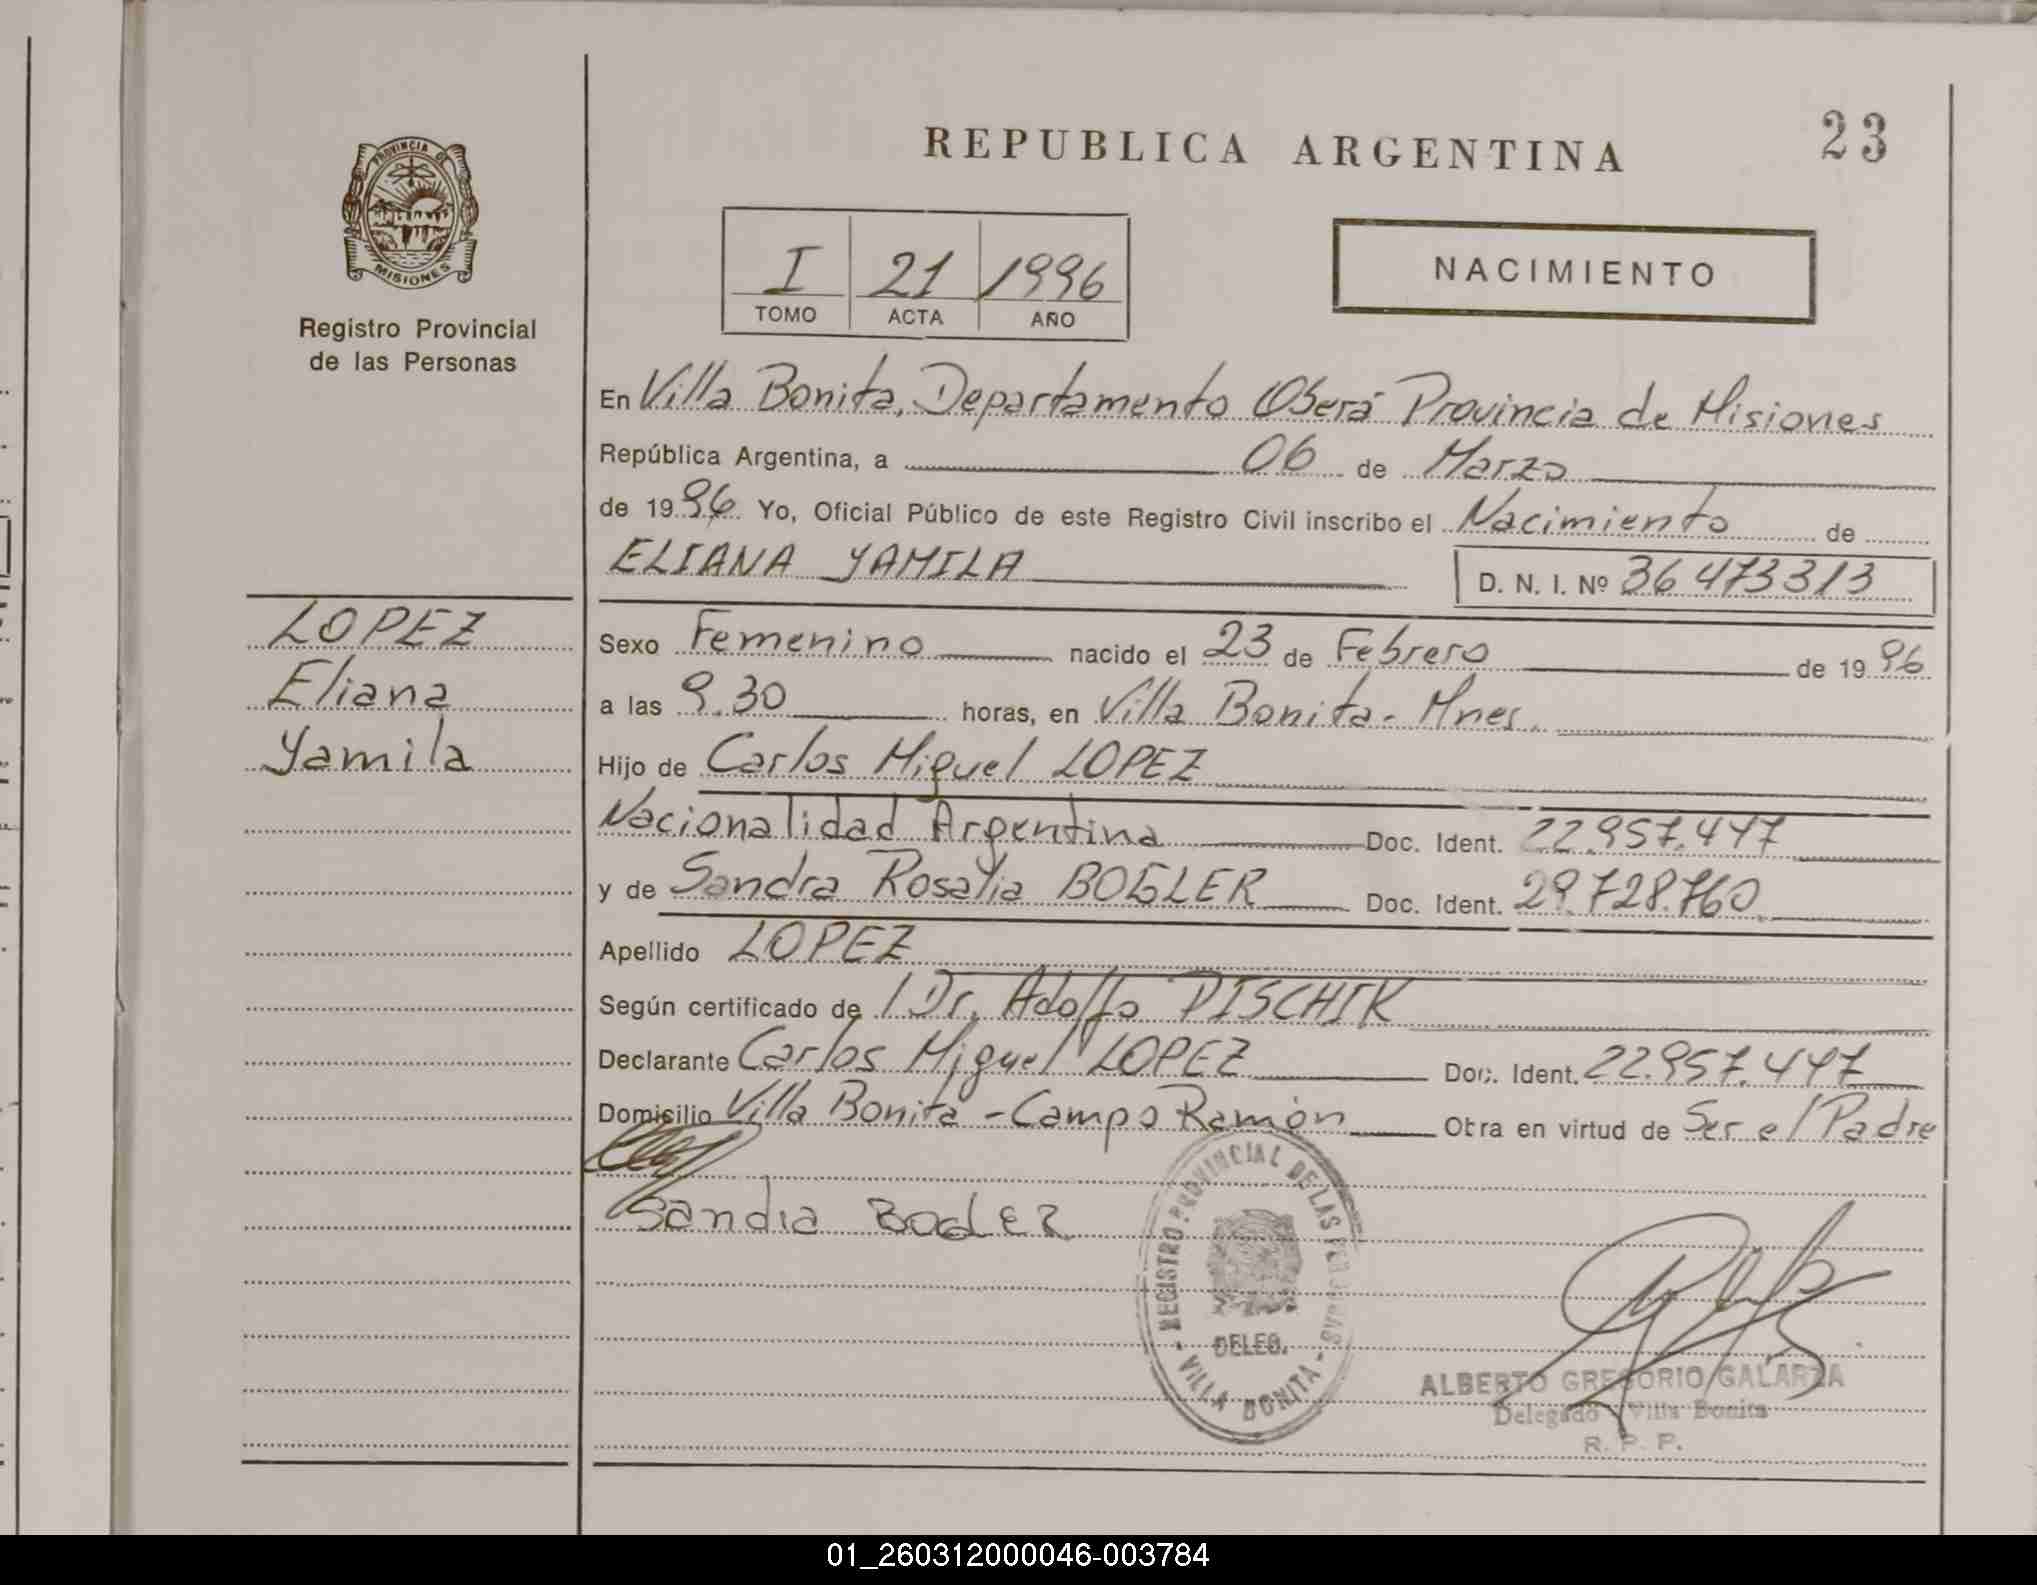 REPUBLICA ARGENTINA
23
PROVINCIA DE
MISIONES
Registro Provincial
de las Personas
I 21 1996
TOMO ACTA AÑO
NACIMIENTO
En Villa Bonita, Departamento Oberá Provincia de Misiones
República Argentina, a 06 de Marzo
de 1996 Yo, Oficial Público de este Registro Civil inscribo el Nacimiento de
ELIANA YAMILA D. N. I. Nº 36 473313
LOPEZ
Eliana
Yamila
Sexo Femenino nacido el 23 de Febrero de 1996
a las 9.30 horas, en Villa Bonita - Mnes.
Hijo de Carlos Miguel LOPEZ
Nacionalidad Argentina Doc. Ident. 22.957.447
y de Sandra Rosalia BOGLER Doc. Ident. 29.728.760
Apellido LOPEZ
Según certificado de / Dr. Adolfo PISCHIK
Declarante Carlos Miguel LOPEZ Doc. Ident. 22.957.447
Domicilio Villa Bonita - Campo Ramón Obra en virtud de Ser el Padre
Sandra BOGLER
REGISTRO PROVINCIAL DE LAS PERSONAS
DELEG.
- VILLA BONITA -
ALBERTO GREGORIO GALARZA
Delegado Villa Bonita
R. P. P.
01_260312000046-003784